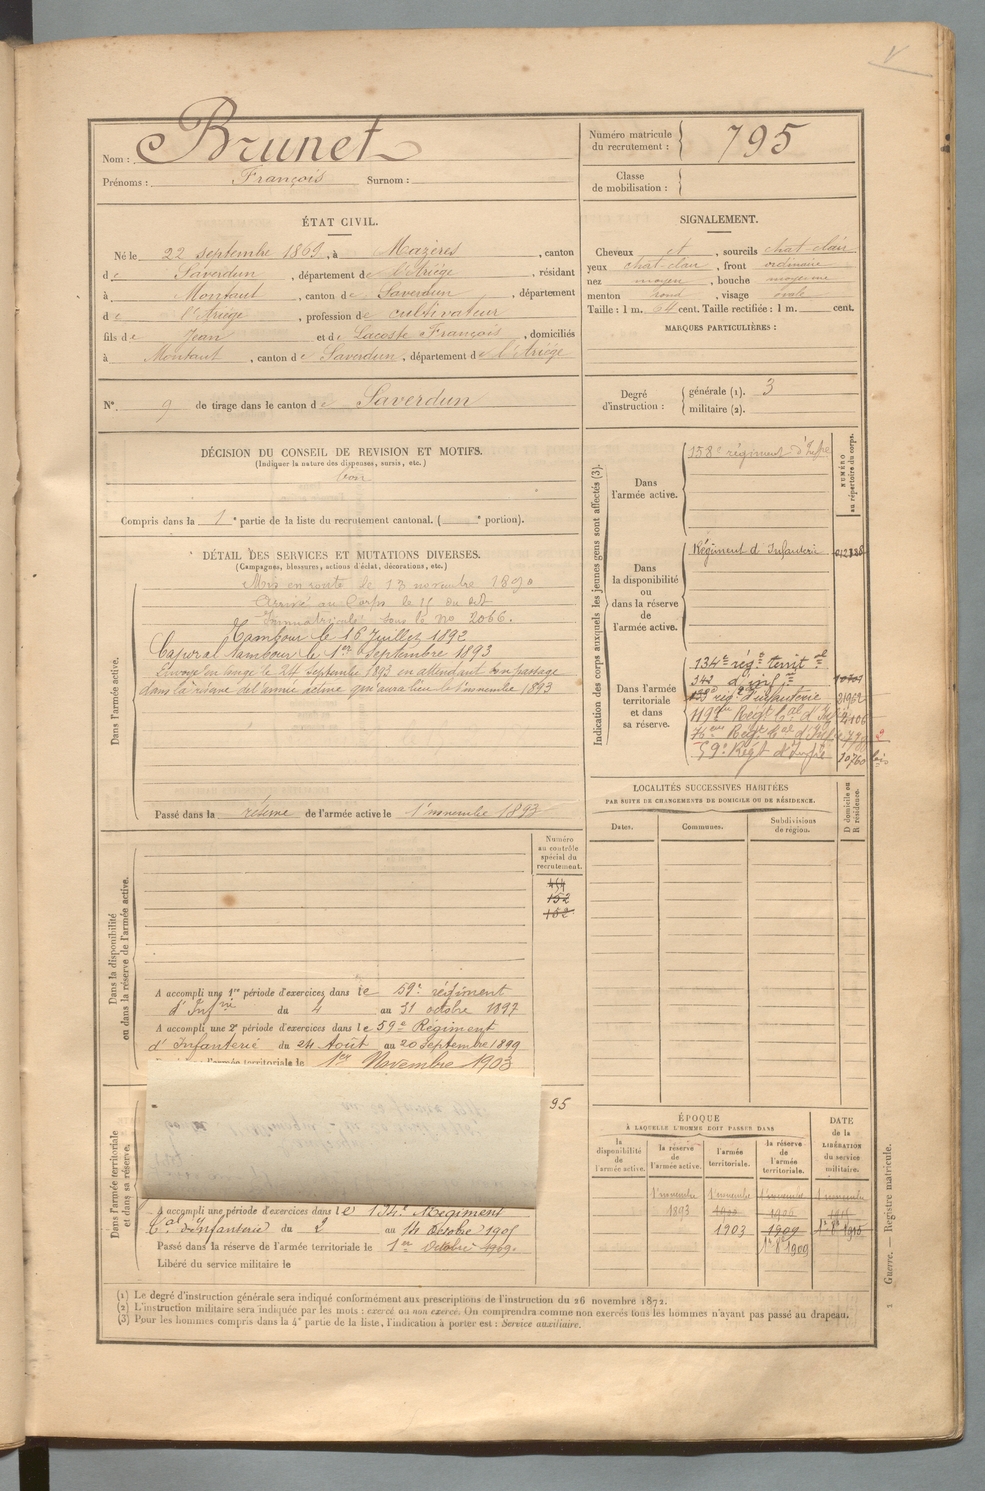 Nom : Brunet
Prénoms : François Surnom :
Numéro matricule du recrutement : 795
Classe de mobilisation :
ÉTAT CIVIL.
Né le 22 septembre 1869, à Mazères, canton
de Saverdun, département de l'Ariège, résidant
à Montaut, canton de Saverdun, département
de l'Ariège, profession de cultivateur
fils de Jean et de Lacoste François, domiciliés
à Montaut, canton de Saverdun, département de l'Ariège
N° 9 de tirage dans le canton de Saverdun
SIGNALEMENT.
Cheveux et, sourcils chat-clair
yeux chat-clair, front ordinaire
nez moyen, bouche moyenne
menton rond, visage ovale
Taille : 1 m. 64 cent. Taille rectifiée : 1 m. cent.
MARQUES PARTICULIÈRES :
Degré d'instruction : générale (1). 3
militaire (2).
DÉCISION DU CONSEIL DE REVISION ET MOTIFS.
(Indiquer la nature des dispenses, sursis, etc.)
bon
Compris dans la 1e partie de la liste du recrutement cantonal. ( e portion).
DÉTAIL DES SERVICES ET MUTATIONS DIVERSES.
(Campagnes, blessures, actions d'éclat, décorations, etc.)
Dans l'armée active.
Mis en route le 13 novembre 1890
Arrivé au Corps le 15 du dit
Immatriculé sous le no 2066.
Tambour le 16 Juillet 1892
Caporal tambour le 1er Septembre 1893
Envoyé en congé le 24 Septembre 1893 en attendant son passage
dans la réserve de l'armée active qui aura lieu le 1er novembre 1893
Passé dans la réserve de l'armée active le 1er novembre 1893
Indication des corps auxquels les jeunes gens sont affectés (3).
NUMÉRO au répertoire du corps.
Dans l'armée active.
158e régiment d'Infie
Dans la disponibilité ou dans la réserve de l'armée active.
Régiment d'Infanterie 012838
Dans l'armée territoriale et dans sa réserve.
134e rég.t territ.al
342 d'inf.ie
133e rég.t d'infanterie 21962
119e Regt d'Inf
76e
59e Régt d'Infie 10760 bis
LOCALITÉS SUCCESSIVES HABITÉES
PAR SUITE DE CHANGEMENTS DE DOMICILE OU DE RÉSIDENCE.
Dates. Communes. Subdivisions de région. D domicile ou R résidence.
Dans la disponibilité ou dans la réserve de l'armée active.
Numéro au contrôle spécial du recrutement.
454
152
152
A accompli une 1re période d'exercices dans le 59e régiment
d'Infrie du 4 au 31 octobre 1897
A accompli une 2e période d'exercices dans le 59e Régiment
d'Infanterie du 24 Août au 20 Septembre 1899
l'armée territoriale le 1er Novembre 1903
95
Dans l'armée territoriale et dans sa réserve.
A accompli une période d'exercices dans le 134e Régiment
tal d'infanterie du 2 au 14 Octobre 1905
Passé dans la réserve de l'armée territoriale le 1er Octobre 1909.
Libéré du service militaire le
ÉPOQUE
À LAQUELLE L'HOMME DOIT PASSER DANS
la disponibilité de l'armée active.
la réserve de l'armée active.
l'armée territoriale.
la réserve de l'armée territoriale.
DATE de la LIBÉRATION du service militaire.
1er novembre 1er novembre 1er novembre 1er novembre
1893 1900 1906 1915
1903 1909 1er 8bre 1915
1er 8bre 1909
(1) Le degré d'instruction générale sera indiqué conformément aux prescriptions de l'instruction du 26 novembre 1872.
(2) L'instruction militaire sera indiquée par les mots : exercé ou non exercé. On comprendra comme non exercés tous les hommes n'ayant pas passé au drapeau.
(3) Pour les hommes compris dans la 4e partie de la liste, l'indication à porter est : Service auxiliaire.
Guerre. — Registre matricule.